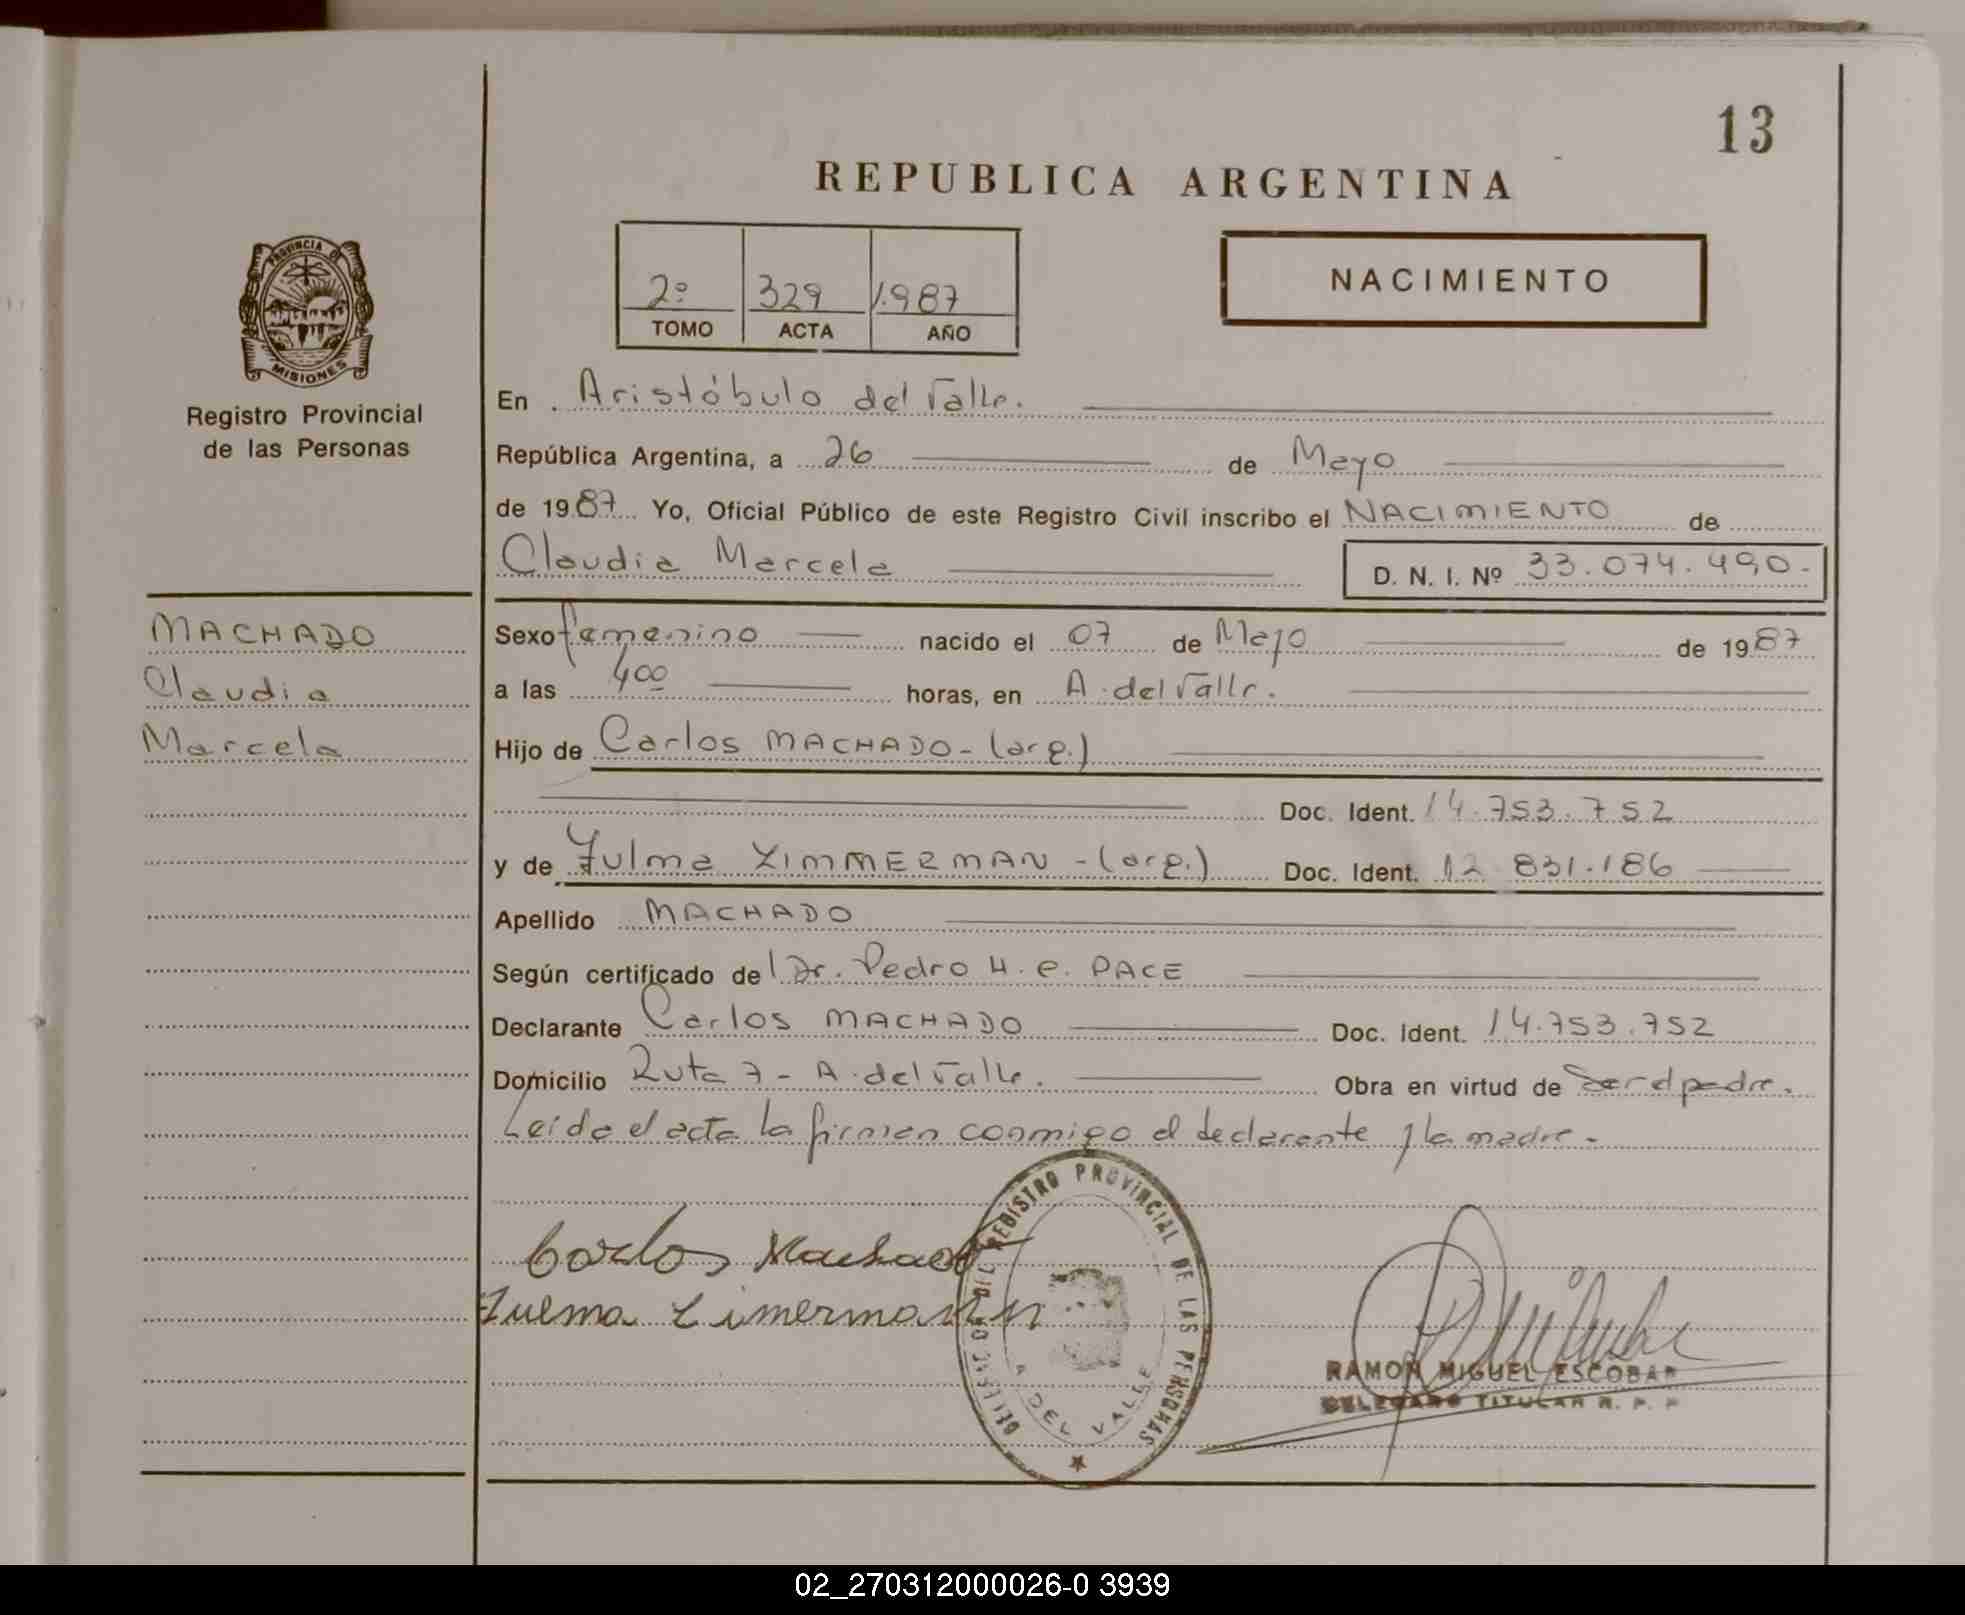 13
REPUBLICA ARGENTINA
PROVINCIA DE
MISIONES
Registro Provincial
de las Personas
2º 329 1.987
TOMO ACTA AÑO
NACIMIENTO
En Aristóbulo del Valle.
República Argentina, a 26 de Mayo
de 1987 Yo, Oficial Público de este Registro Civil inscribo el NACIMIENTO de
Claudia Marcela D. N. I. Nº 33.074.490.-
MACHADO
Claudia
Marcela
Sexo femenino nacido el 07 de Mayo de 1987
a las 400 horas, en A. del Valle.
Hijo de Carlos MACHADO - (arg.)
Doc. Ident. 14.753.752
y de Zulma ZIMMERMAN - (arg.) Doc. Ident. 12.831.186
Apellido MACHADO
Según certificado de Dr. Pedro H. e. PACE
Declarante Carlos MACHADO Doc. Ident. 14.753.752
Domicilio Ruta 7 - A. del Valle. Obra en virtud de Ser el padre.
Leída el acta la firman conmigo el declarante y la madre.-
Carlos Machado
Zulma Zimermann
DELEGACION DEL REGISTRO PROVINCIAL DE LAS PERSONAS
A DEL VALLE
RAMON MIGUEL ESCOBAR
DELEGADO TITULAR R. P. P
02_270312000026-0 3939